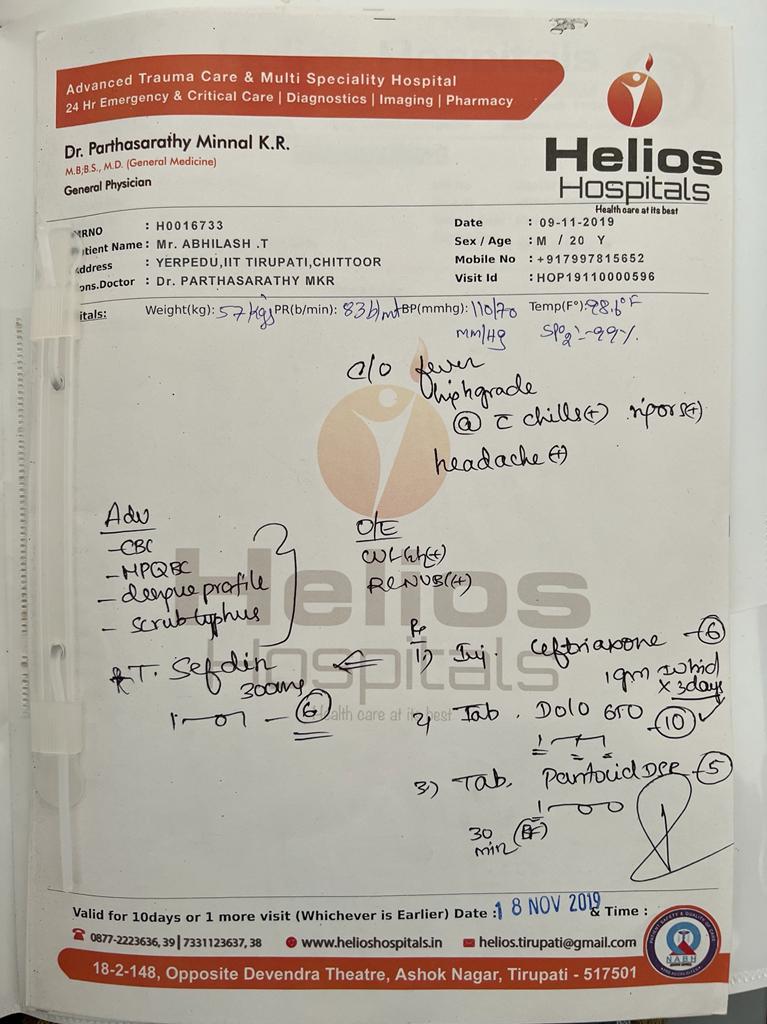 Advanced Trauma Care & Multi Speciality Hospital
24 Hr Emergency & Critical Care | Diagnostics | Imaging | Pharmacy
Dr. Parthasarathy Minnal K.R.
M.B;B.S., M.D. (General Medicine)
General Physician
Helios
Hospitals
Health care at its best
MRNO : H0016733
Date : 09-11-2019
tient Name : Mr. ABHILASH .T
Sex / Age : M / 20 Y
ddress : YERPEDU,IIT TIRUPATI,CHITTOOR
Mobile No : +917997815652
ons.Doctor : Dr. PARTHASARATHY MKR
Visit Id : HOP19110000596
itals: Weight(kg): 57 kgs PR(b/min): 83 b/mt BP(mmhg): 110/70 mm/Hg Temp(F°): 98.6°F
SpO2:-99%
C/O fever
highgrade
@ c̄ chills(+) rigors(+)
headache (+)
Adv
-CBC
-MPQBC
- dengue profile
- scrub typhus
O/E
Helios
Hospitals
Health care at its best
T. Sefdin
300mg
1-0-1 - 6
Rx
1) Inj. Ceftriaxone - 6
1gm IV bid
x 3days
2) Tab. Dolo 650 - 10 ✓
1-1-1
3) Tab. Pantocid DSR - 5
1-0-0
30 min (BF)
Valid for 10days or 1 more visit (Whichever is Earlier) Date : 18 NOV 2019 & Time :
0877-2223636, 39 | 7331123637, 38 www.helioshospitals.in helios.tirupati@gmail.com
NABH
18-2-148, Opposite Devendra Theatre, Ashok Nagar, Tirupati - 517501